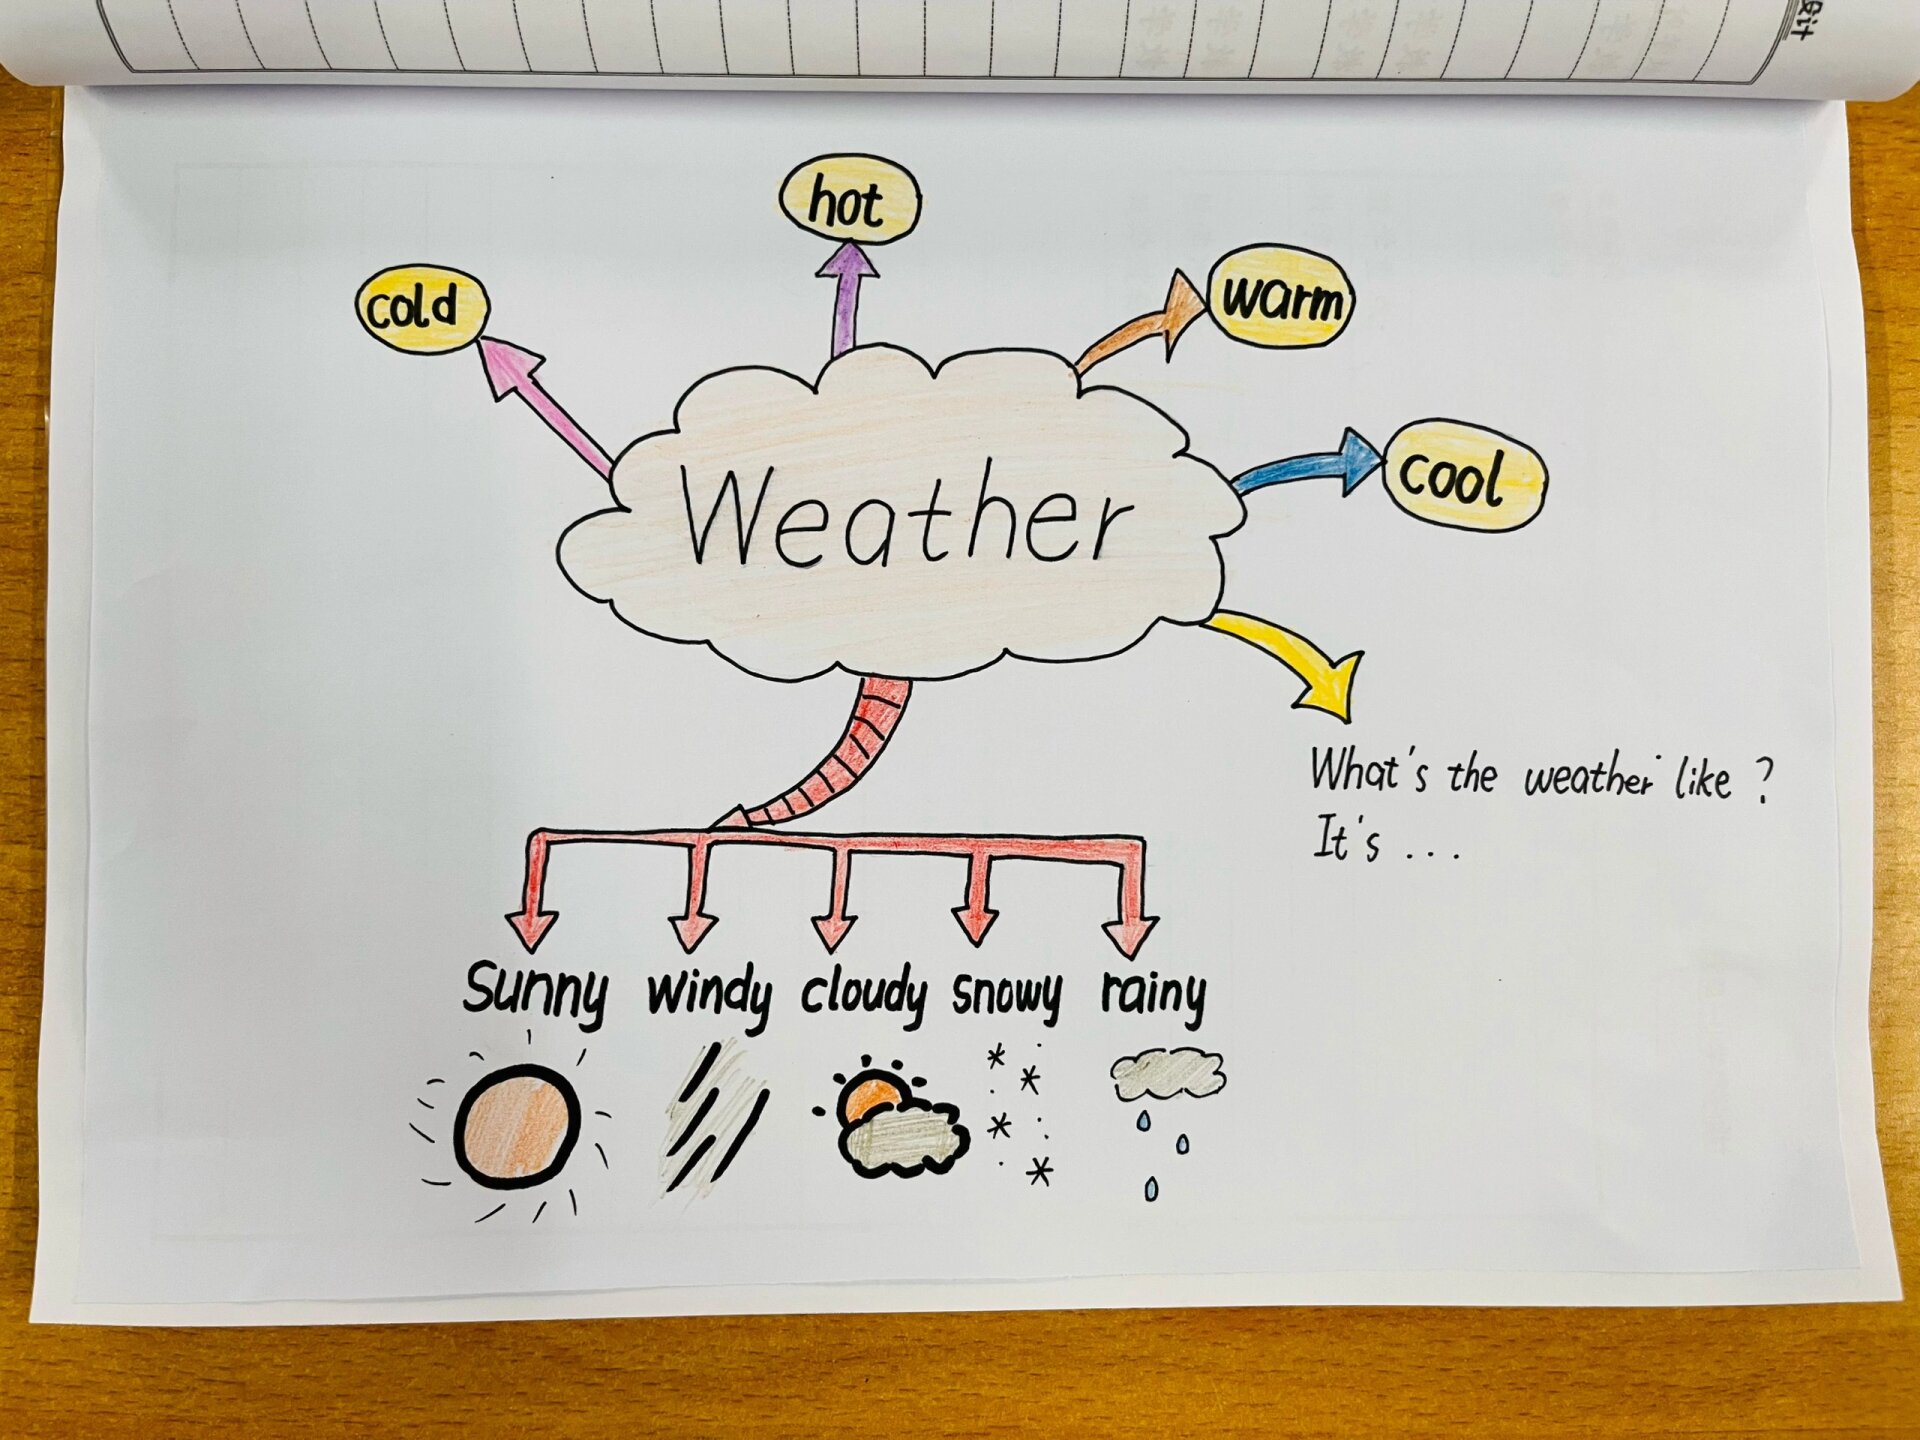 hot
cold
warm
cool
Weather
What's the weather like ?
It's ...
Sunny windy cloudy snowy rainy